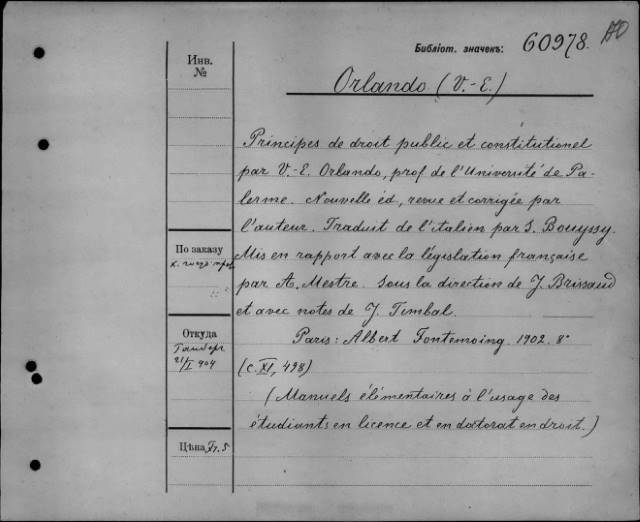 Библіот. значекъ: 60978.
Инв.
№
Orlando (V.-E.)
Principes de droit public et constitutionel
par V.-E. Orlando, prof de l'Université de Pa-
lerme. Nouvelle éd, revue et corrigée par
l'auteur. Traduit de l'italien par S. Bouyssy.
Mis en rapport avec la législation française
par A. Mestre. Sous la direction de J. Brissaud
et avec notes de J. Timbal.
Paris: Albert Fontemoing. 1902. 8°
(c. XI, 498)
(Manuels élémentaires à l'usage des
étudiants en licence et en doctorat en droit.)
По заказу
Откуда
21/I 904
Цѣна Fr. 5